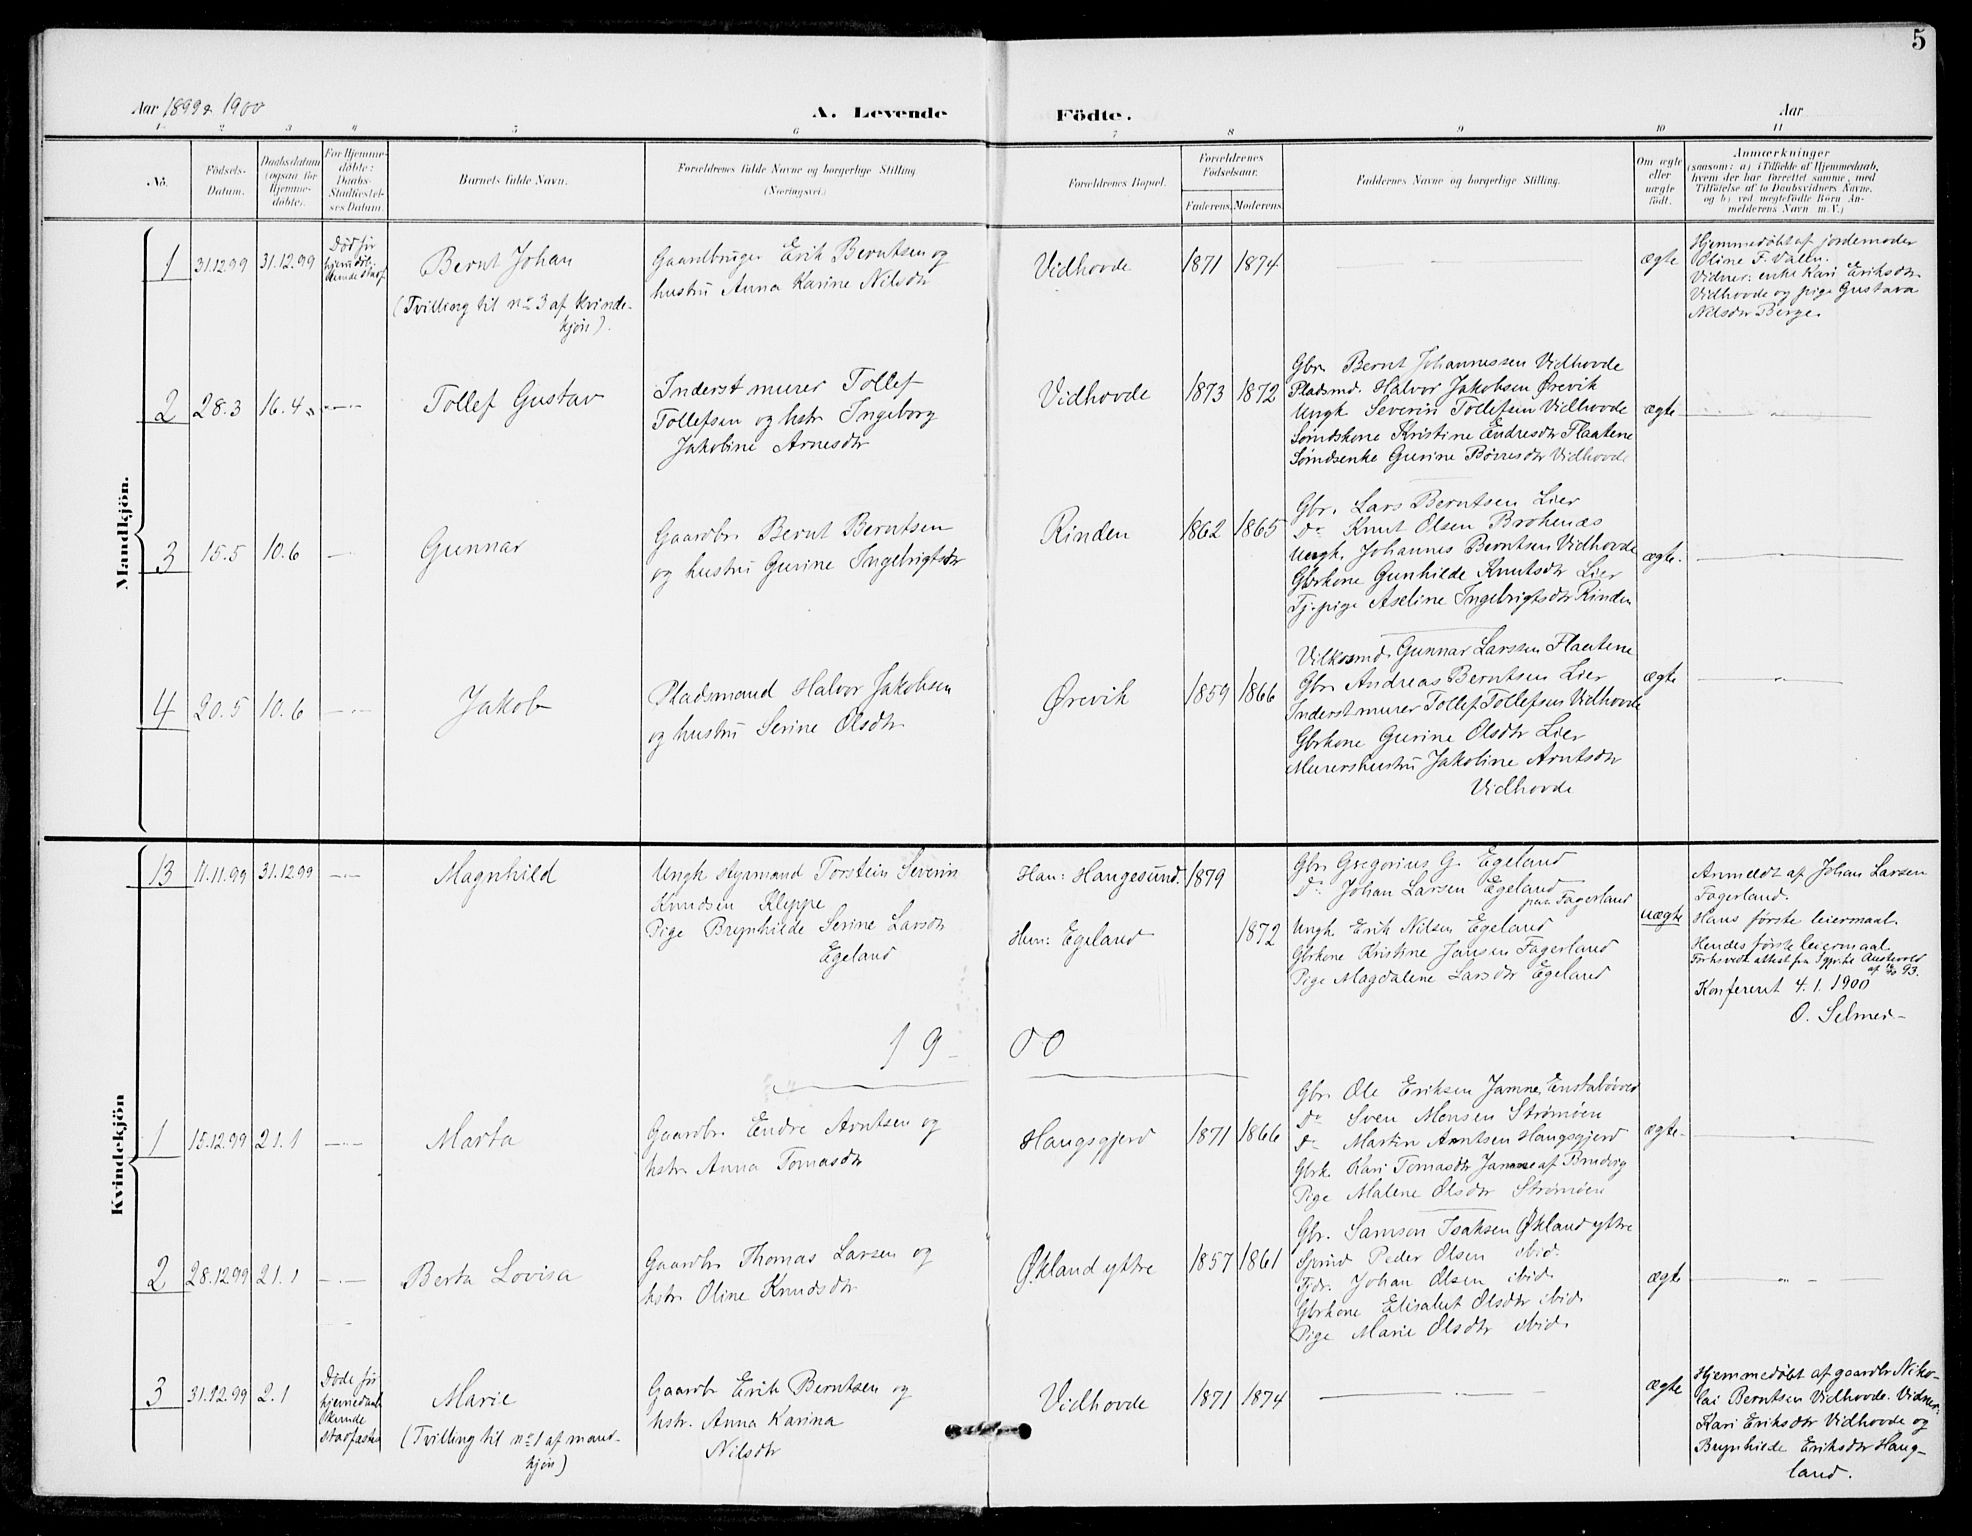 5
Aar 1899 & 1900
A. Levende Födte.
Aar
1 2 3 4 5 6 7 8 9 10 11
No.
Födsels-Datum.
Daabsdatum (ogsaa for Hjemme-döbte).
For Hjemme-döbte: Daabs-Stadfæstel-ses Datum.
Barnets fulde Navn.
Forældrenes fulde Navne og borgerlige Stilling (Næringsvei).
Forældrenes Bopæl.
Forældrenes Födselsaar.
Faderens. Moderens.
Faddernes Navne og borgerlige Stilling.
Om ægte eller uægte födt.
Anmærkninger
(saasom: a) i Tilfælde af Hjemmedaab,
hvem der har forrettet samme, med
Tilföielse af to Daabsvidners Navne,
og b) ved uægtefödte Börn An-
melderens Navn m. V.)
Mandkjön.
1 31.12.99 31.12.99
Død før
hjemmedåb.
kunde stadf.
Bernt Johan
(Tvilling til nr 3 af kvinde-
kjøn).
Gaardbruger Erik Berntsen og
hustru Anna Karine Nilsdtr
Vidhovde 1871 1874
ægte
Hjemmedøbt af jordemoder
Oline F. Valen.
Vidner: enke Kari Eriksdtr
Vidhovde og pige Gustava
Nilsdtr Berge.
2 28.3 16.4
Tollef Gustav
Inderst murer Tollef
Tollefsen og hstr. Ingeborg
Jakobine Arnesdtr
Vidhovde 1873 1872
Gbr. Bernt Johannessen Vidhovde
Pladsmd. Halvor Jakobsen Ørevik
Ungk Severin Tollefsen Vidhovde
Sømdskone Kristine Endresdtr Flaatene
Sømdsenke Gurine Børresdtr Vidhovde
ægte
3 15.5 10.6
Gunnar
Gaardbr. Bernt Berntsen
og hustru Gurine Ingebrigtsdtr
Rinden 1862 1865
Gbr. Lars Berntsen Lier
Do Knut Olsen Brokenæs
Ungk. Johannes Berntsen Vidhovde
Gbrkone Gunhilde Knutsdtr Lier
Tj.pige Aseline Ingebrigtsdtr Rinden
ægte.
4 20.5 10.6
Jakob
Pladsmand Halvor Jakobsen
og hustru Serine Olsdtr
Ørevik 1859 1866
Vilkosmd. Gunnar Larssen Flaatene
Gbr. Andreas Berntsen Lier
Inderst murer Tollef Tollefsen Vidhovde
Gbrkone Gurine Olsdtr Lier
Murershustru Jakobine Arntsdtr
Vidhovde
ægte
Kvindekjön
13 11.11.99 31.12.99
Magnhild
Ungk styrmand Torstein Severin
Knudsen Kleppe
Pige Brynhilde Serine Larsdtr
Egeland
Han: Haugesund. 1879
Hun: Egeland 1872
Gbr Gregorius G. Egeland
Do Johan Larsen Egeland
paa Fagerland
Ungk Erik Nilsen Egeland
Gbrkone Kristine Jansen Fagerland
Pige Magdalene Larsdtr Egeland
uægte
Anmeldt af Johan Larsen
Fagerland.
Hans første leiermaal.
Hendes første leiermaal.
attest fra Austevold
93.
Konfereret 4.1.1900
O. Selmer
19 00
1 15.12.99 21.1
Marta
Gaardbr. Endre Arntsen og
hstr Anna Tomasdtr
Haugsgjerd 1871 1866
Gbr. Ole Eriksen Jamne,
Do Sven Monsen Strømøen
Do Martin Arntsen Haugsgjerd
Gbrk Kari Tomasdtr Jamne af
Pige Malene Olsdtr Strømøen
ægte
2 28.12.99 21.1
Berta Lovisa
Gaardbr Thomas Larsen og
hstr. Oline Knudsdtr
Økland yttre 1857 1861
Gbr. Samson Isaksen Økland yttre
Peder Olsen ibid.
Tjdr. Johan Olsen ibid.
Gbrkone Elisabet Olsdtr ibid.
Pige Marie Olsdtr ibid.
ægte
3 31.12.99 2.1
Døde før
hjemmedaab
kunde
stadfæstes
Marie
(Tvilling til nr 1 af mand-
kjøn)
Gaardbr Erik Berntsen og
hstr. Anna Karina
Nilsdtr
Vidhovde 1871 1874
ægte
Hjemmedøbt af gaardbr Niko-
lai Berntsen Vidhovde. Vidner:
Kari Eriksdtr Vidhovde og
Brynhilde Eriksdtr Haug-
land.